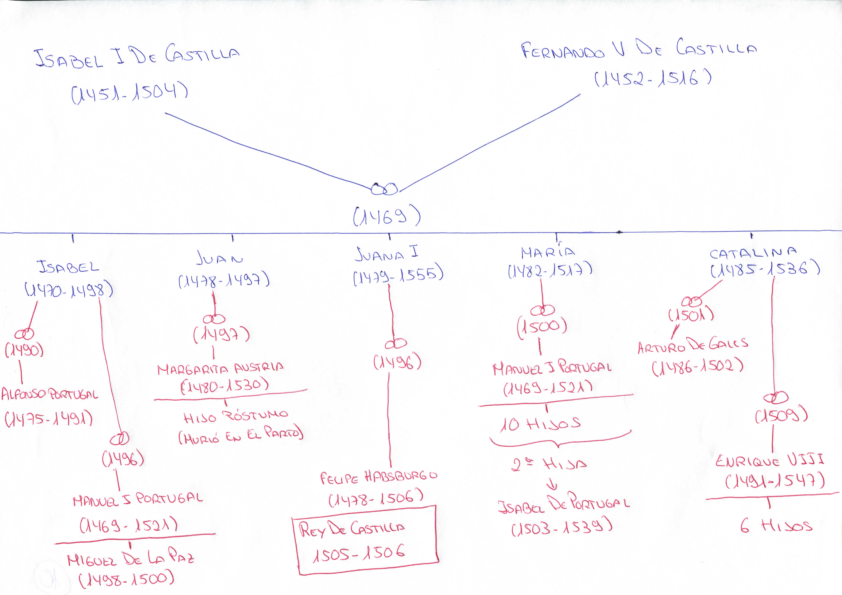 ISABEL I DE CASTILLA
(1451-1504)
FERNANDO V DE CASTILLA
(1452-1516)
(1469)
ISABEL
(1470-1498)
(1490)
ALFONSO PORTUGAL
(1475-1491)
(1496)
MANUEL I PORTUGAL
(1469-1521)
MIGUEL DE LA PAZ
(1498-1500)
JUAN
(1478-1497)
(1497)
MARGARITA AUSTRIA
(1480-1530)
HIJO PÓSTUMO
(MURIÓ EN EL PARTO)
JUANA I
(1479-1555)
(1496)
FELIPE HABSBURGO
(1478-1506)
REY DE CASTILLA
1505-1506
MARÍA
(1482-1517)
(1500)
MANUEL I PORTUGAL
(1469-1521)
10 HIJOS
2ª HIJA
↓
ISABEL DE PORTUGAL
(1503-1539)
CATALINA
(1485-1536)
(1501)
ARTURO DE GALES
(1486-1502)
(1509)
ENRIQUE VIII
(1491-1547)
6 HIJOS